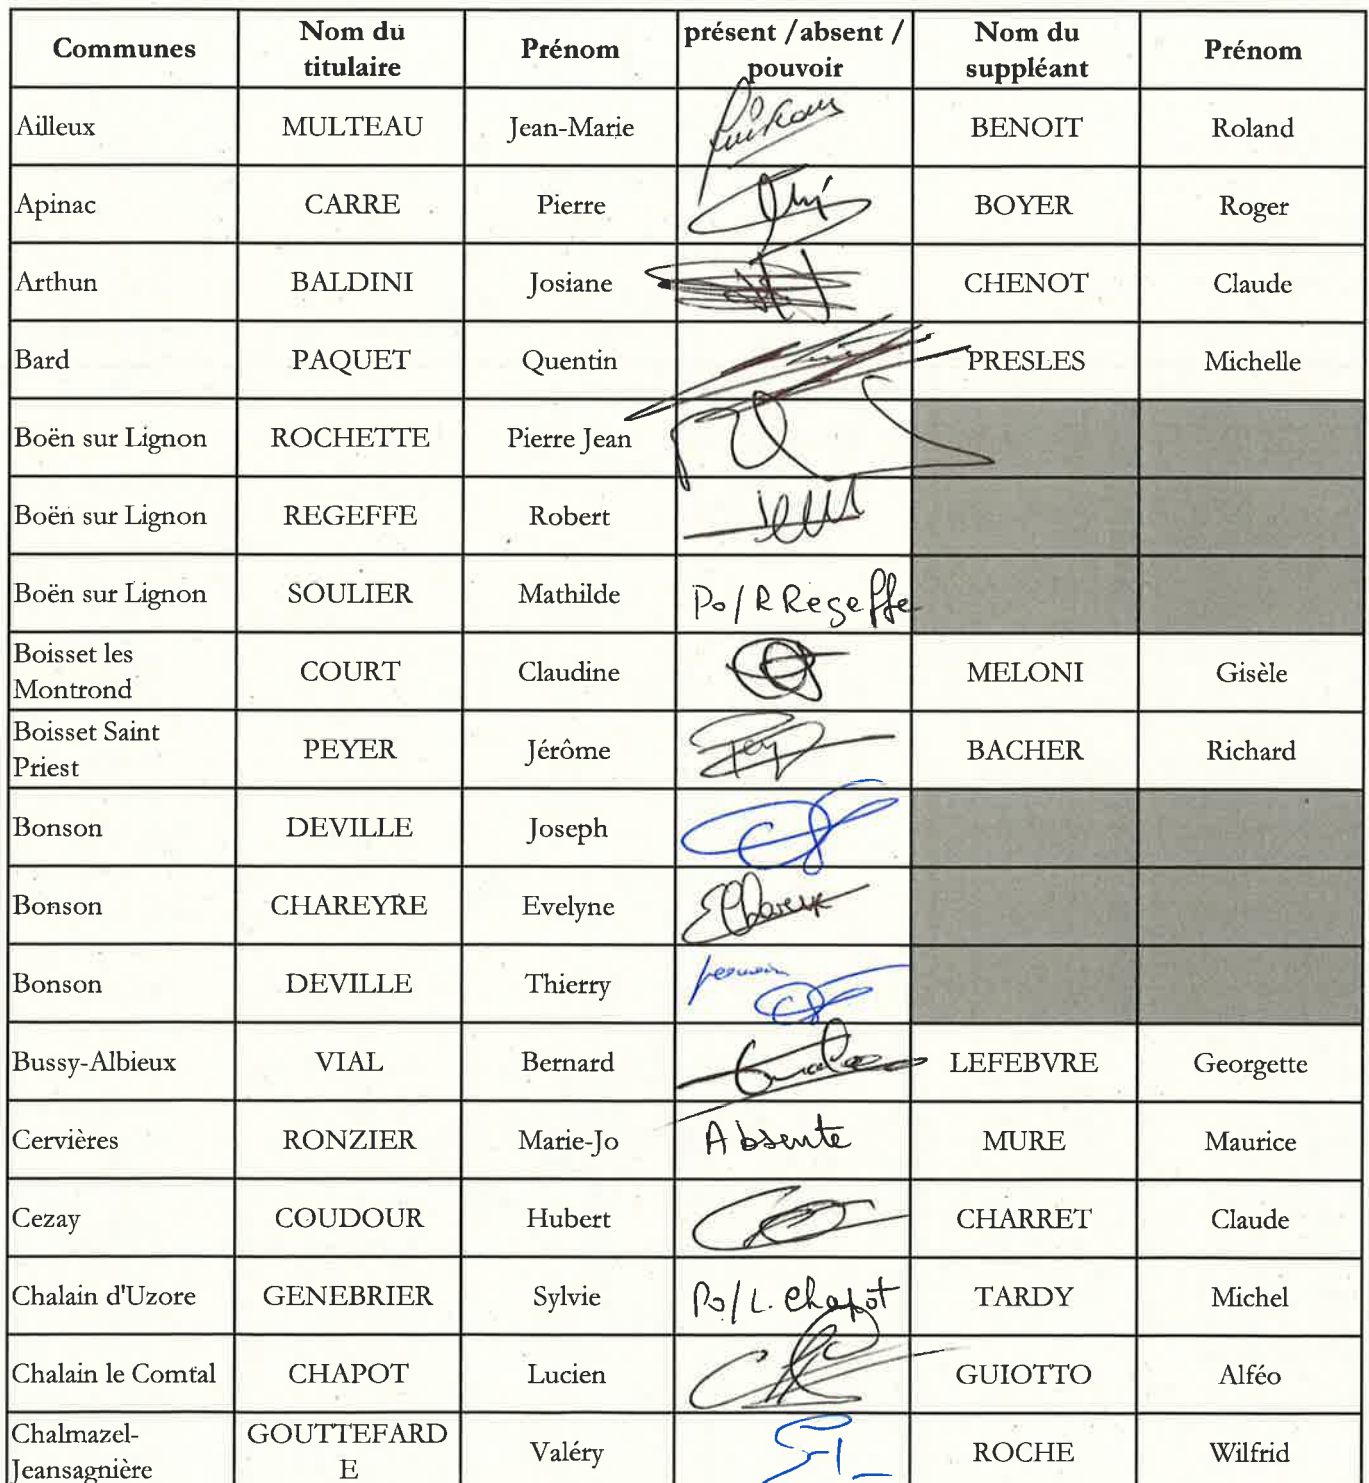 Communes Nom du titulaire Prénom présent / absent / pouvoir Nom du suppléant Prénom
Ailleux MULTEAU Jean-Marie BENOIT Roland
Apinac CARRE Pierre BOYER Roger
Arthun BALDINI Josiane CHENOT Claude
Bard PAQUET Quentin PRESLES Michelle
Boën sur Lignon ROCHETTE Pierre Jean
Boën sur Lignon REGEFFE Robert
Boën sur Lignon SOULIER Mathilde Po/R Regeffe
Boisset les Montrond COURT Claudine MELONI Gisèle
Boisset Saint Priest PEYER Jérôme BACHER Richard
Bonson DEVILLE Joseph
Bonson CHAREYRE Evelyne
Bonson DEVILLE Thierry pouvoir
Bussy-Albieux VIAL Bernard LEFEBVRE Georgette
Cervières RONZIER Marie-Jo Absente MURE Maurice
Cezay COUDOUR Hubert CHARRET Claude
Chalain d'Uzore GENEBRIER Sylvie Po/L. Chapot TARDY Michel
Chalain le Comtal CHAPOT Lucien GUIOTTO Alféo
Chalmazel-Jeansagnière GOUTTEFARDE Valéry ROCHE Wilfrid